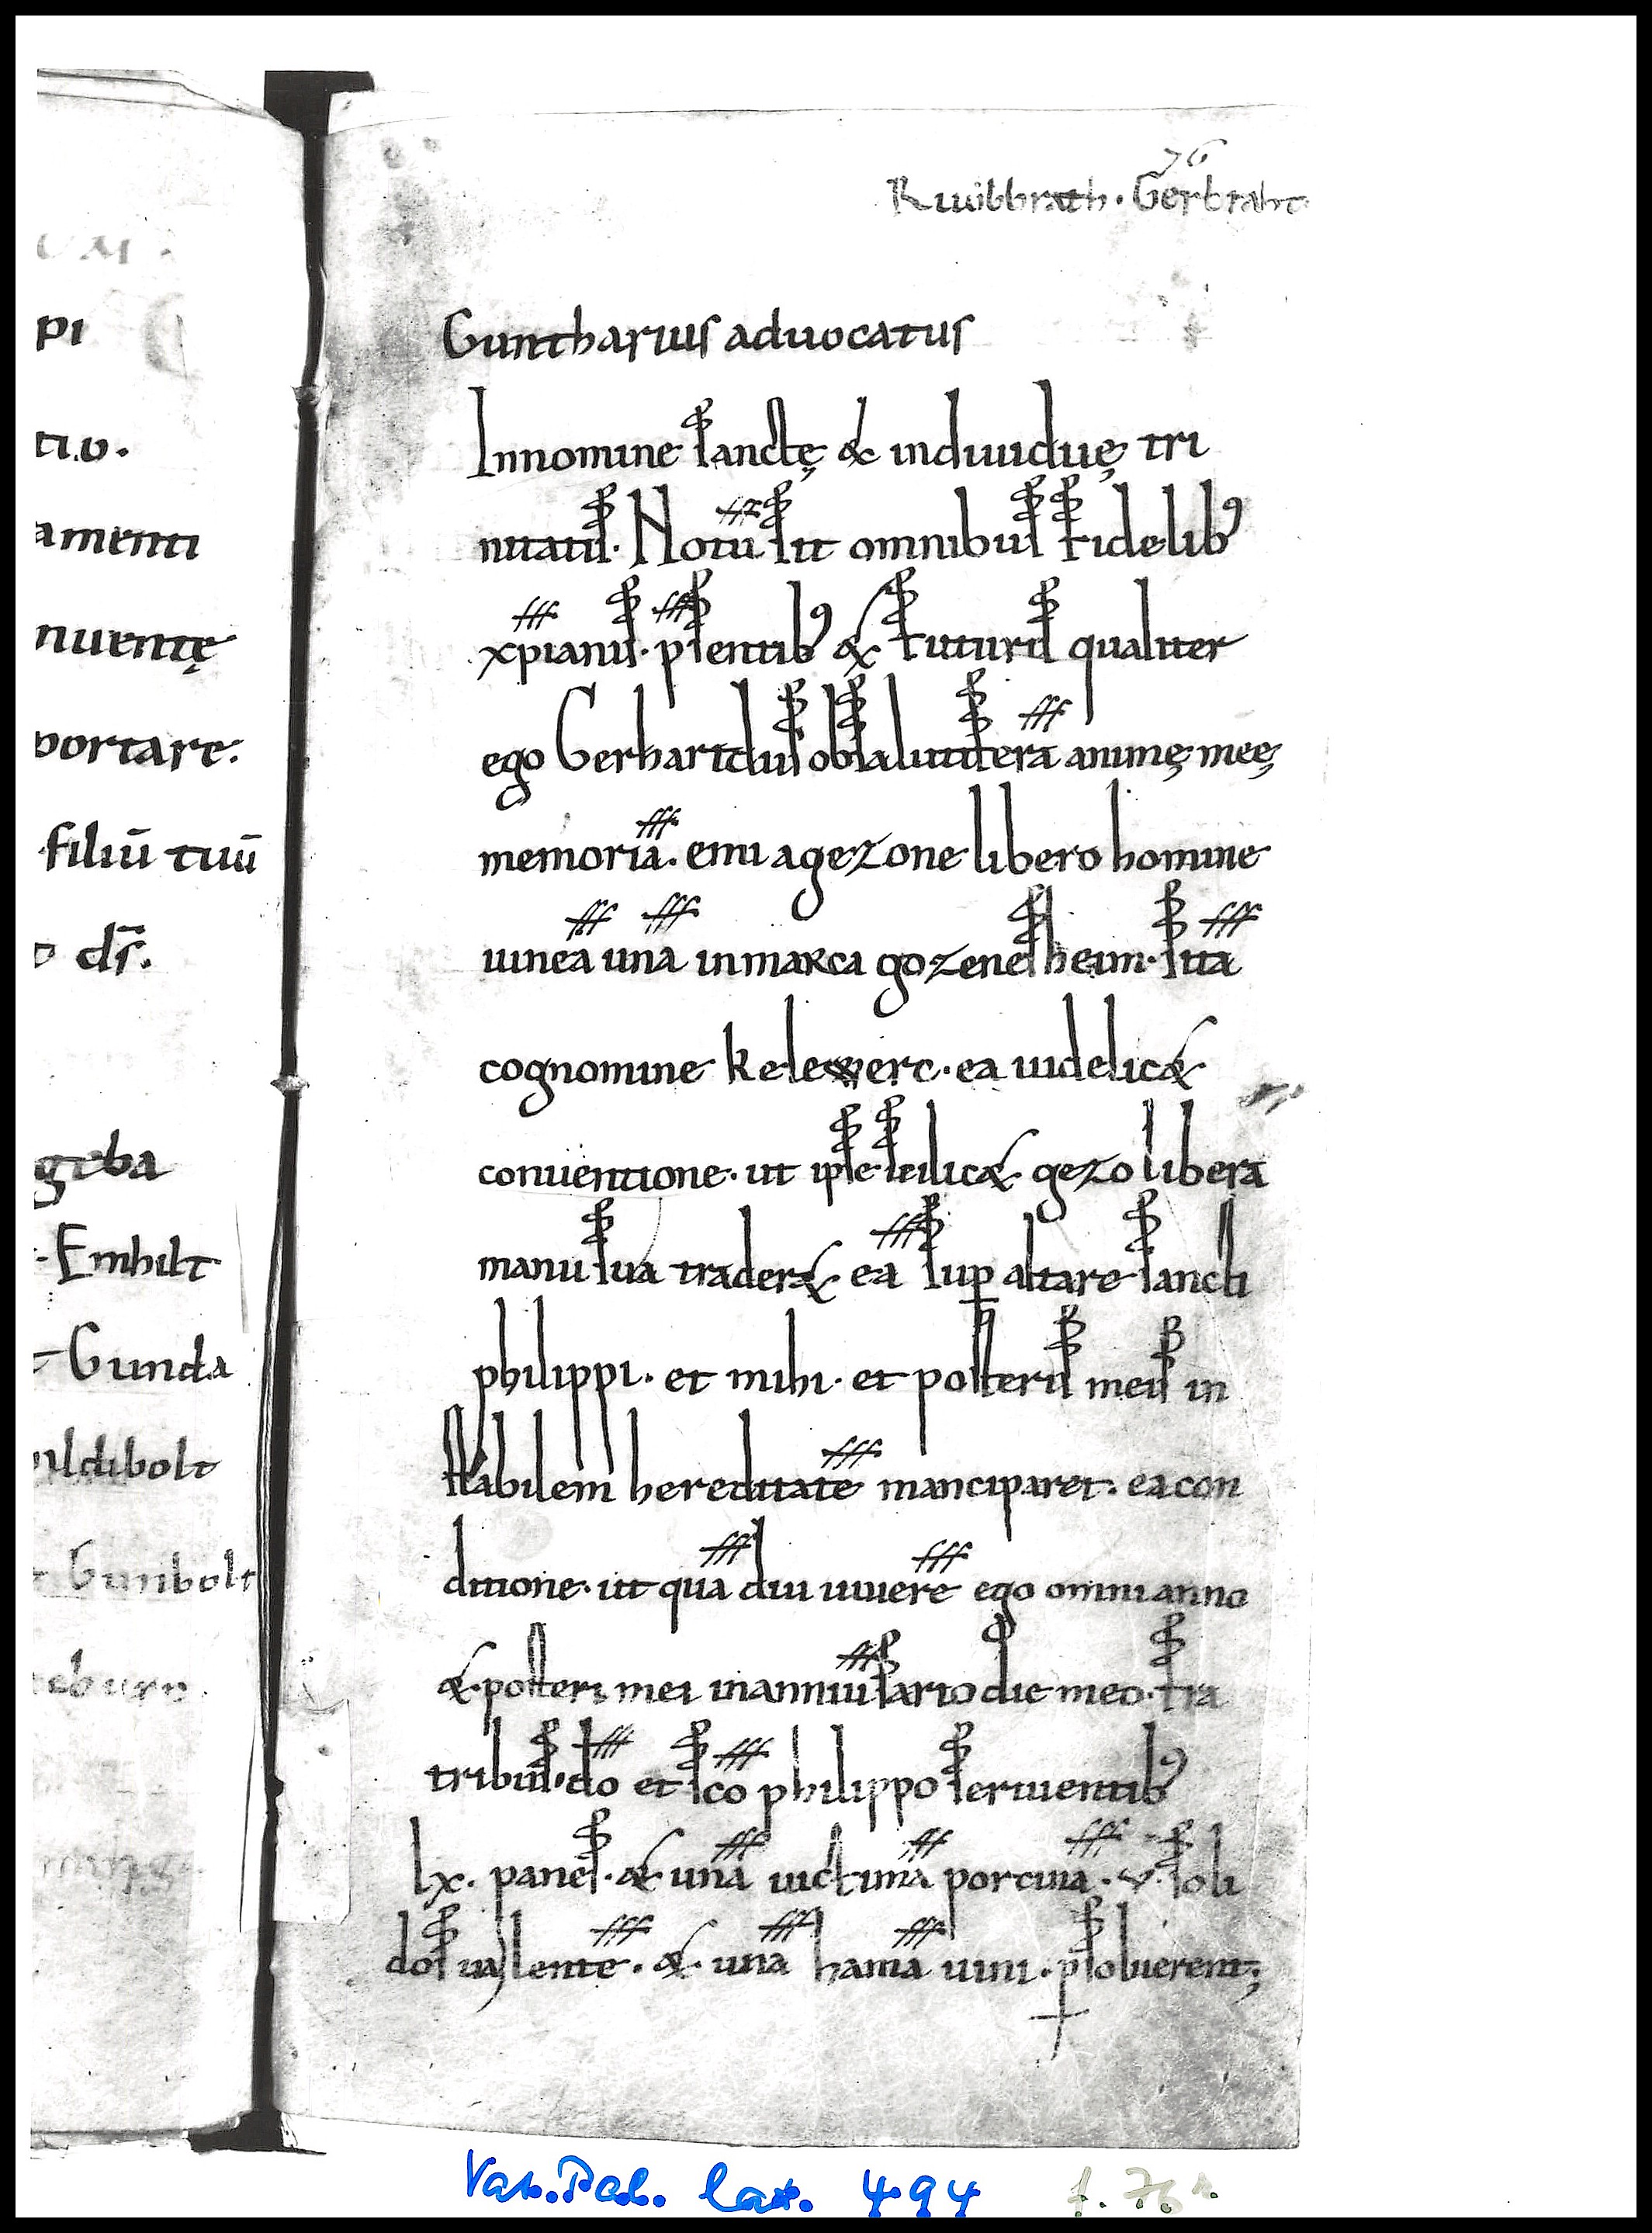 UM.
pi
tio.
amenti
nuentę
portare.
filiū tuū
o dr̄.
geba
Emhilt
Gunda
uldibolt
Gunbolt
eburn
76
Ruuibbrath. Gerbraht
Guntharius aduocatus
In nomine sanctę & indiuiduę tri
nitatis. Notū sit omnibus fidelib;
xp̄ianis. p̄sentib; & futuris qualiter
ego Gerhardus ob salutiferā animę meę
memoriā. emi a gezone libero homine
uineā unā in marca gozenesheim. sitā
cognomine kelewerc. ea uidelic&
conuentione. ut ipse scilic& gezo libera
manu sua trader& eā sup altare sancti
philippi. et mihi. et posteris meis in
stabilem hereditatē manciparet. ea con
ditione. ut quā diu uiuerē ego omni anno
& posteri mei in anniuersario die meo. fra
tribus. dō et scō philippo seruientib;
lx. panes. & unā uictimā porcinā. v. soli
dos ualentē. & unā hamā uini. psoluerent;
Vat. Pal. lat. 494 f. 76r.